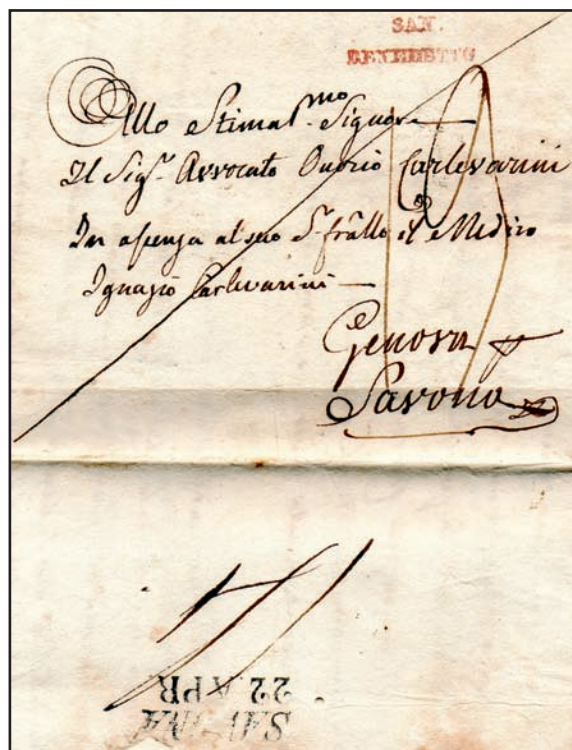 SAN.
BENEDETTO
Allo Stimat.mo Signore
Il Sig.r Avvocato Onorio Carlevarini
In assenza al suo S.r frãllo il Medico
Ignazio Carlevarini
Genova p
Savona
22 APR
SAVONA